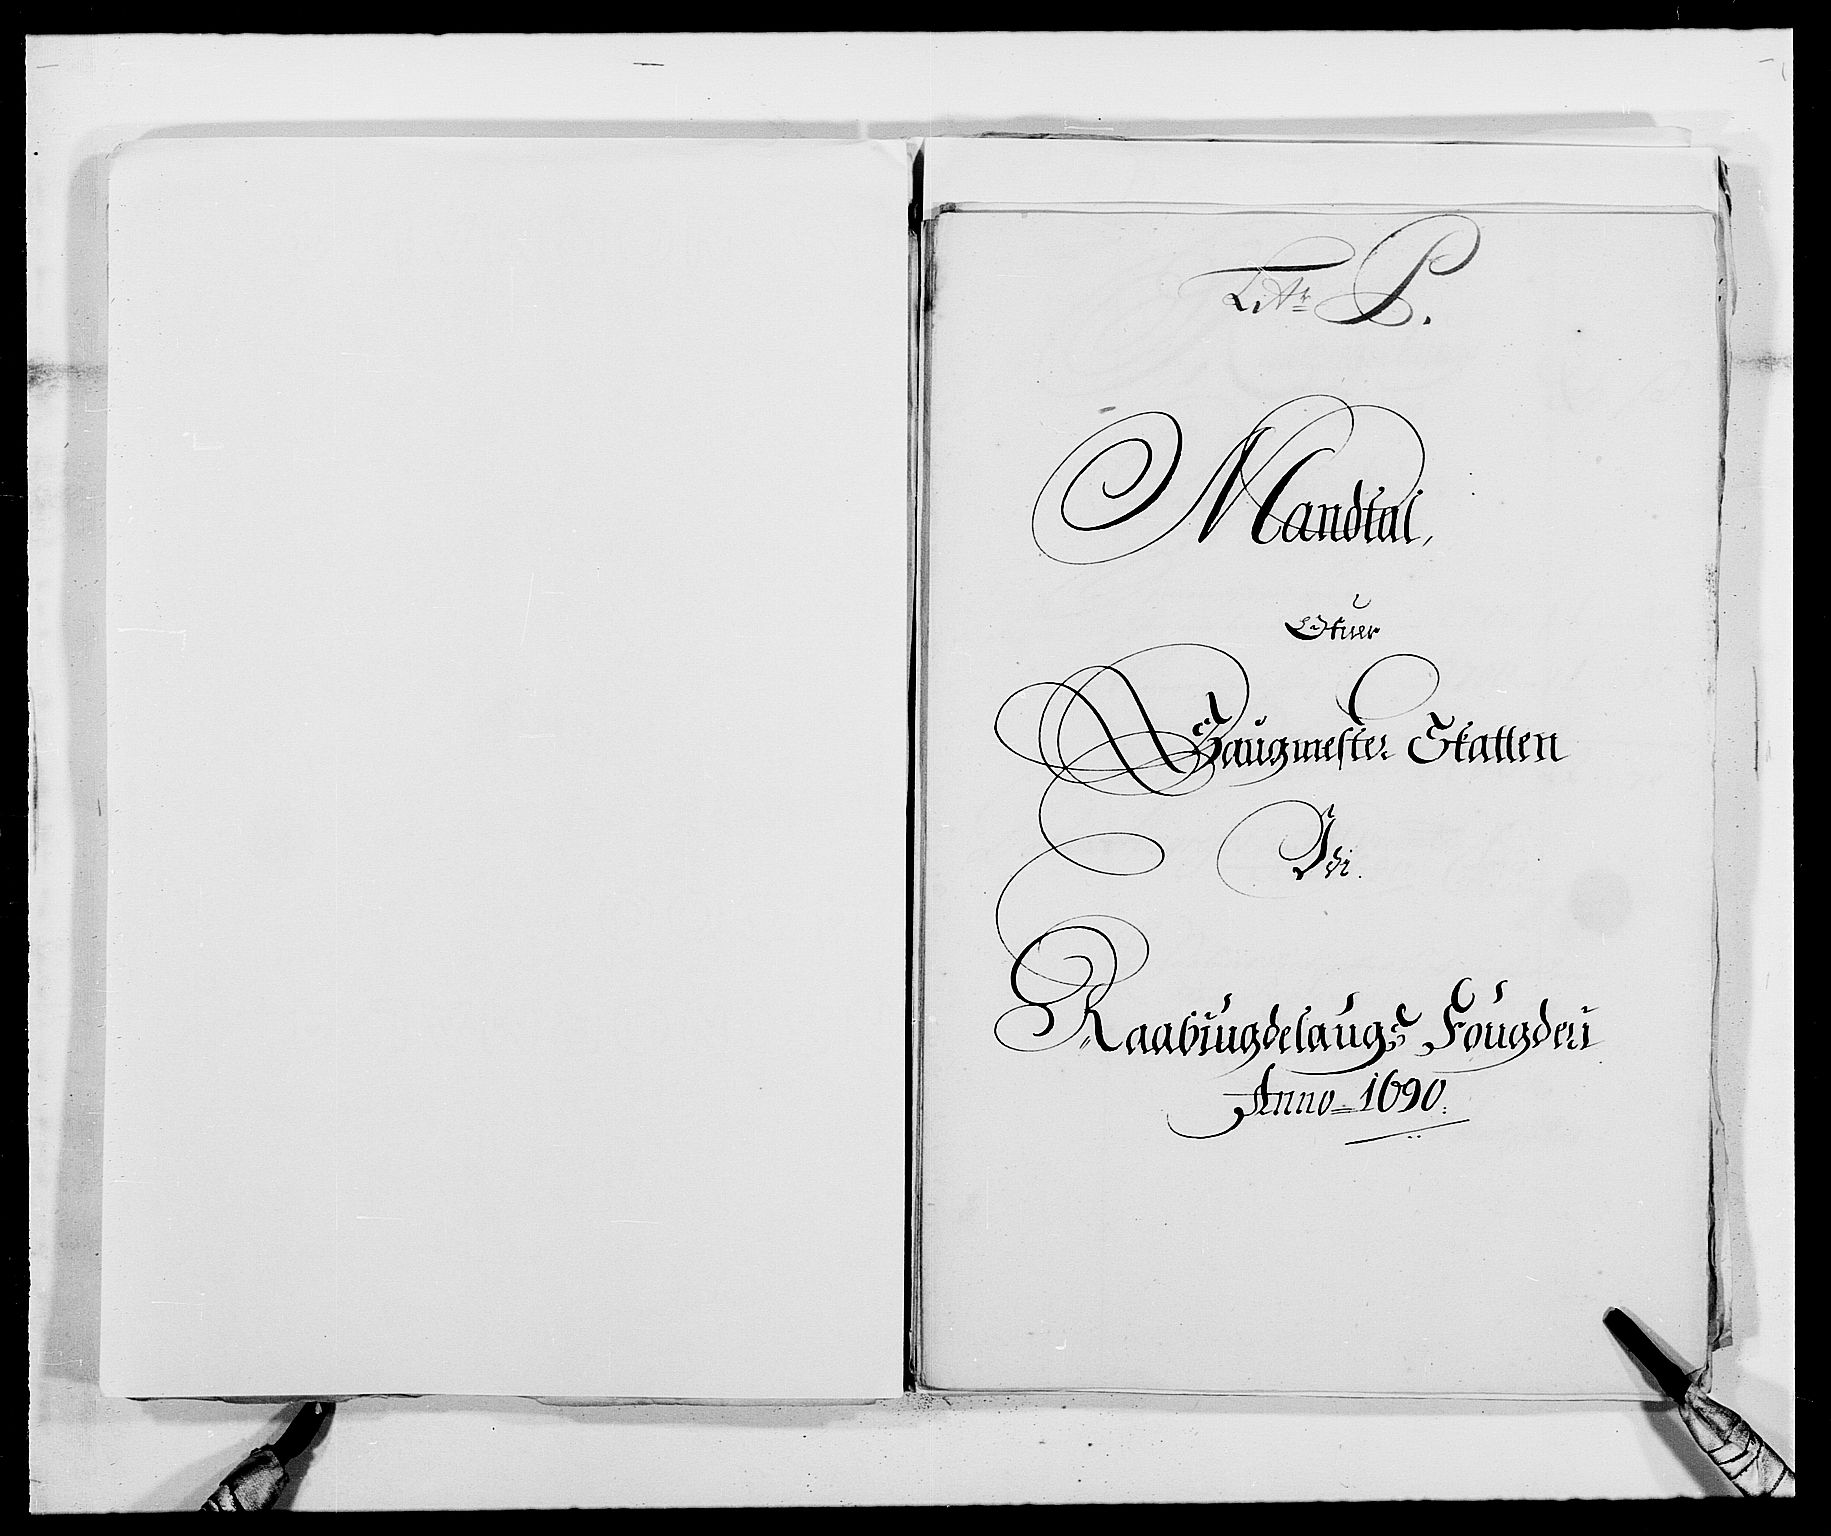 Litr P.
Mandtal,
Ofuer
Saugmester Skatten
Udi.
Raabÿugdelaugs Fougderi
Anno = 1690.